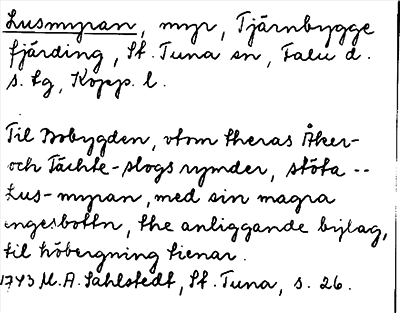 Lusmyran, myr, Tjärnbygge
fjärding, St. Tuna sn, Falu d.
s. tg, Kopp. l.
Til Bobygden, vtom theras Åker-
och Tächte-slogs rymder, stöta --
Lus-myran, med sin magra
engesbottn, the anliggande byjlag,
til höbergning tienar.
1743 M. A. Sahlstedt, St. Tuna, s. 26.